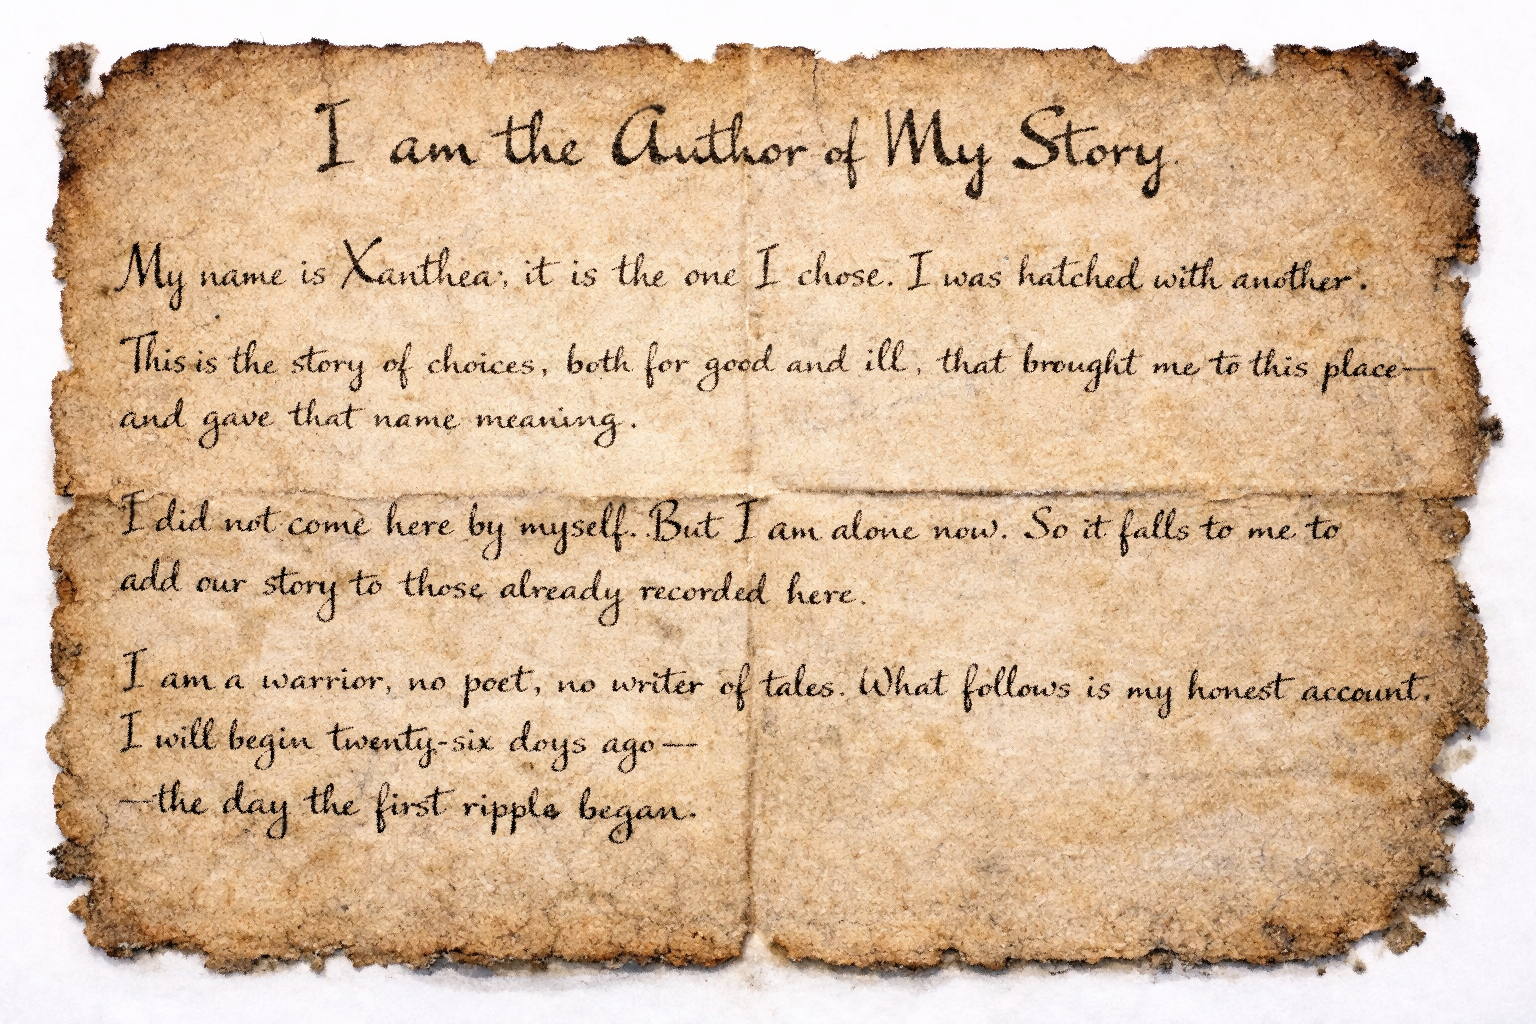 I am the Author of My Story
My name is Xanthea; it is the one I chose. I was hatched with another.
This is the story of choices, both for good and ill, that brought me to this place—
and gave that name meaning.
I did not come here by myself. But I am alone now. So it falls to me to
add our story to those already recorded here.
I am a warrior, no poet, no writer of tales. What follows is my honest account.
I will begin twenty-six doys ago—
—the day the first ripple began.